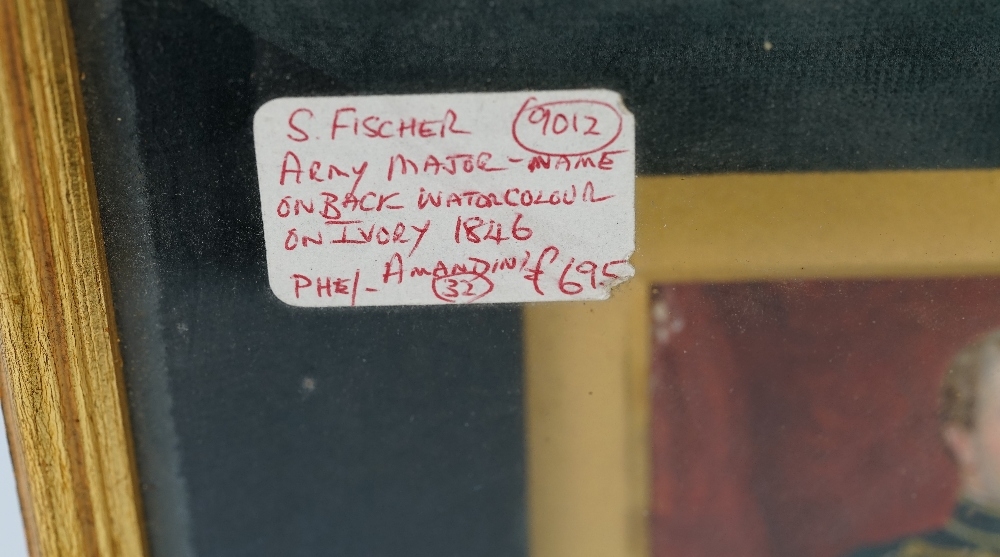 S. FISCHER 9012
ARMY MAJOR - NAME
ON BACK WATORCOLOUR
ON IVORY 1846
PHE/- AMANDINI £695
32